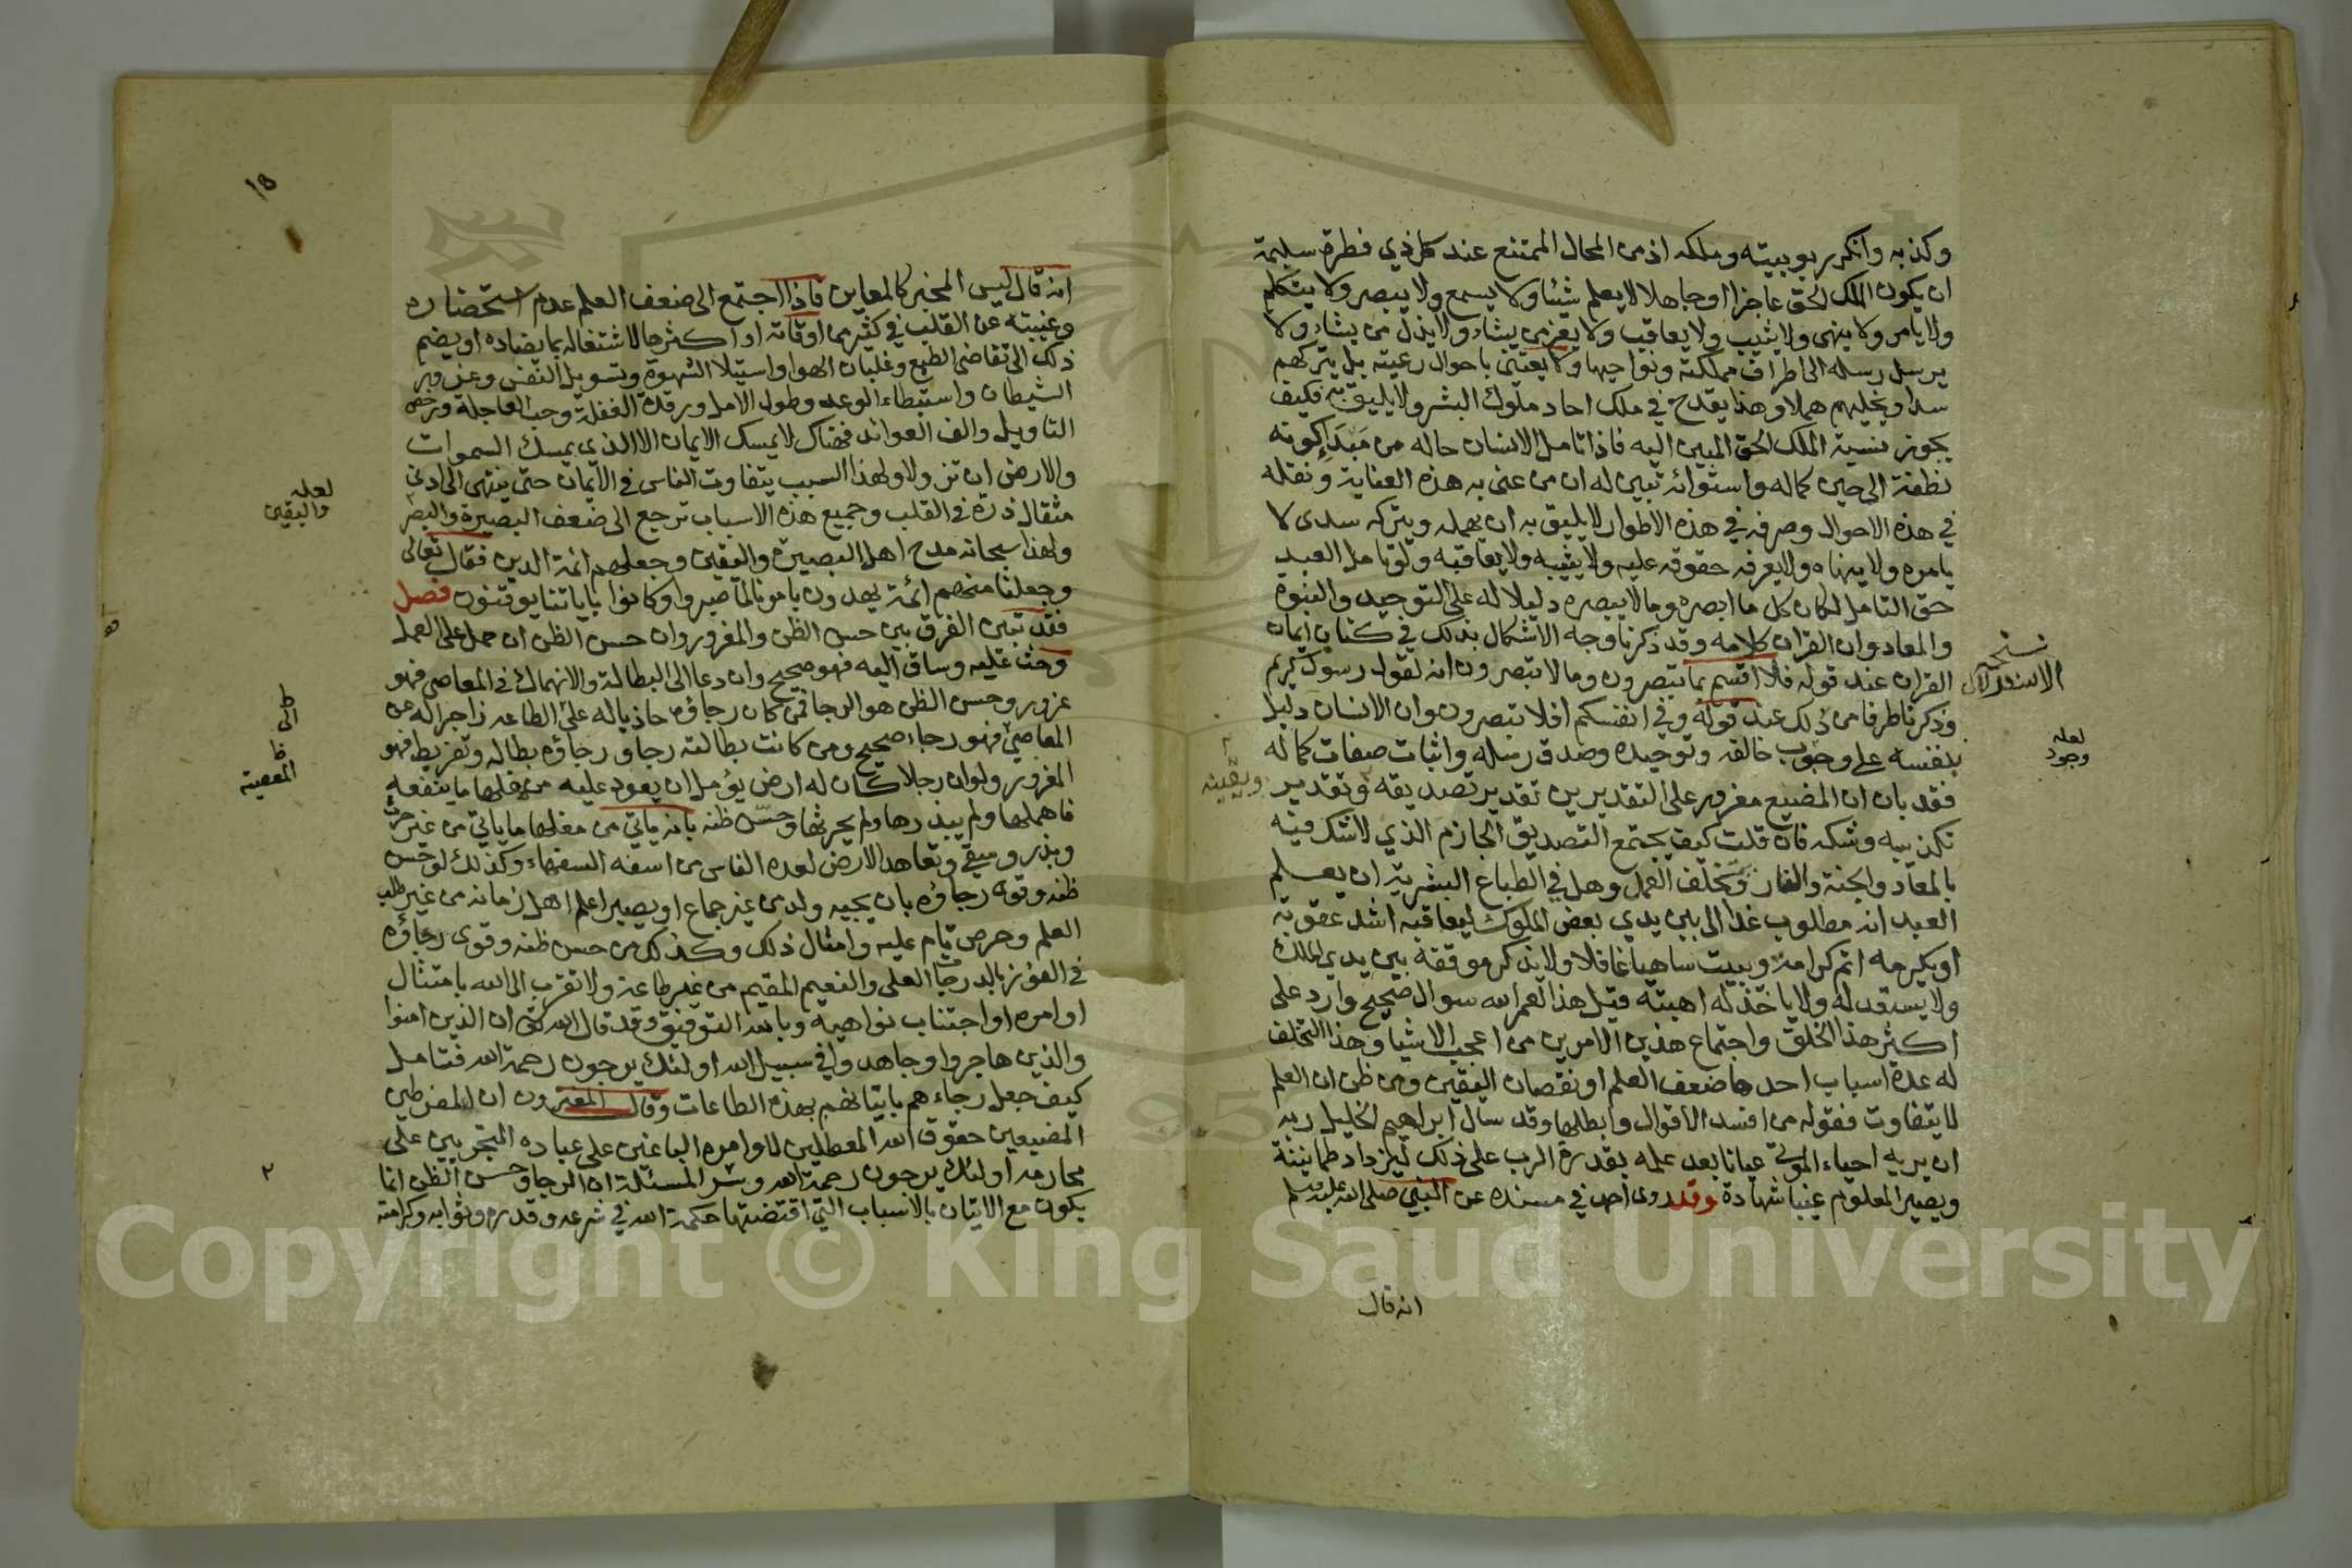 وكذبه وانكر ربوبيته وملكه اذ من المحال الممتنع عند كل ذي فطرة سليمة
ان يكون الملك الحق عاجزا او جاهلا لا يعلم شيئا ولا يسمع ولا يبصر ولا يتكلم
ولا يامر ولا ينهى ولا يثيب ولا يعاقب ولا يعز من يشاء ولا يذل من يشاء ولا
يرسل رسله الى اطراف مملكته ونواحيها ولا يعتني باحوال رعيته بل يتركهم
سدا ويخليهم هملا وهذا يقدح في ملك احاد ملوك البشر ولا يليق به فكيف
يجوز نسبة الملك الحق المبين اليه فاذا تامل الانسان حاله من مبدا كونه
نطفة الى حين كماله واستوائه تبين له ان من عنى به هذه العناية ونقله
في هذه الاحوال وصرفه في هذه الاطوار لا يليق به ان يهمله ويتركه سدى لا
يامره ولا ينهاه ولا يعرفه حقوقه عليه ولا يثيبه ولا يعاقبه ولو تامل العبد
حق التامل لكان كل ما ابصره وما لا يبصره دليلا له على التوحيد والنبوة
والمعاد وان القران كلامه وقد ذكرنا وجه الاشكال بذلك في كتاب ايمان
القران عند قوله فلا اقسم بما تبصرون وما لا تبصرون انه لقول رسول كريم
وذكرنا طرفا من ذلك عند قوله وفي انفسكم افلا تبصرون وان الانسان دليل
بنفسه على وجوب خالقه وتوحيده وصدق رسله واثبات صفات كماله
فقد بان ان المضيع مغرور على التقديرين تقدير تصديقه وتقدير
تكذيبه وشكه فان قلت كيف يجتمع التصديق الجازم الذي لا شك فيه
بالمعاد والجنة والنار وتخلف العمل وهل في الطباع البشرية ان يعلم
العبد انه مطلوب غدا الى بين يدي بعض الملوك ليعاقبه اشد عقوبة
او يكرمه اتم كرامة ويبيت ساهيا غافلا ولا يذكر موقفه بين يدي الملك
ولا يستعد له ولا ياخذ له اهبته قيل هذا لعمر الله سوال صحيح وارد على
اكثر هذا الخلق واجتماع هذين الامرين من اعجب الاشيا وهذا التخلف
له عدة اسباب احدها ضعف العلم او نقصان اليقين ومن ظن ان العلم
لا يتفاوت فقوله من افسد الاقوال وابطلها وقد سال ابراهيم الخليل ربه
ان يريه احياء الموتى عيانا بعد علمه بقدرة الرب على ذلك ليزداد طمانينة
ويصير المعلوم غيبا شهادة وقد روى احمد في مسنده عن النبي صلى الله عليه وسلم
انه قال
نسخه
الاستدلال
لعله
وجود
18
انه قال ليس المخبر كالمعاين فاذا اجتمع الى ضعف العلم عدم استحضاره
وغيبته عن القلب في كثير من اوقاته او اكثرها لاشتغاله بما يضاده او يضم
ذلك الى تقاضى الطبع وغلبان الهوا واستيلا الشهوة وتسويل النفس وغرور
الشيطان واستبطاء الوعد وطول الامل ورقدة الغفلة وحب العاجلة ورخص
التاويل والف العوائد فهناك لا يمسك الايمان الا الذي يمسك السموات
والارض ان تزولا ولهذا السبب يتفاوت الناس في الايمان حتى ينتهي الى ادنى
مثقال ذرة في القلب وجميع هذه الاسباب ترجع الى ضعف البصيرة والبصر
ولهذا سبحانه مدح اهل البصيرة واليقين وجعلهم ائمة الدين فقال تعالى
وجعلنا منهم ائمة يهدون بامرنا لما صبروا وكانوا باياتنا يوقنون فصل
فقد تبين الفرق بين حسن الظن والمغرور وان حسن الظن ان حمل على العمل
وحث عليه وساق اليه فهو صحيح وان دعا الى البطالة والانهماك في المعاصي فهو
غرور وحسن الظن هو الرجا فمن كان رجاؤه حاديا له على الطاعه زاجرا له عن
المعاصي فهو رجاء صحيح ومن كانت بطالته رجا ورجاؤه بطاله وتفريط فهو
المغرور ولو ان رجلا كان له ارض يؤمل ان يعود عليه من مغلها ما ينفعه
فاهملها ولم يبذرها ولم يحرثها وحسن ظنه بانه ياتي من مغلها ما ياتي من غير حرث
وبذر وسقي وتعاهد الارض لعده الناس من اسفه السفهاء وكذلك لو حسن
ظنه وقوي رجاؤه بان يجيه ولد من غير جماع او يصير اعلم اهل زمانه من غير طلب
العلم وحرص تام عليه وامثال ذلك وكذلك من حسن ظنه وقوى رجاؤه
في الفوز بالدرجات العلى والنعيم المقيم من غير طاعة ولا تقرب الى الله بامتثال
اوامره او اجتناب نواهيه وبالله التوفيق وقد قال الله تعالى ان الذين امنوا
والذين هاجروا وجاهدوا في سبيل الله اولئك يرجون رحمة الله فتامل
كيف جعل رجاءهم باتيانهم بهذه الطاعات وقال المغترون ان المفرطين
المضيعين حقوق الله المعطلين لاوامره الباغين على عباده المتجريين على
محارمه اولئك يرجون رحمة الله وسر المسئلة ان الرجا وحسن الظن انما
يكون مع الاتيان بالاسباب التي اقتضتها حكمة الله في شرعه وقدره وثوابه وكرامته
لعله
واليقين
المعصية
Copyright © King Saud University